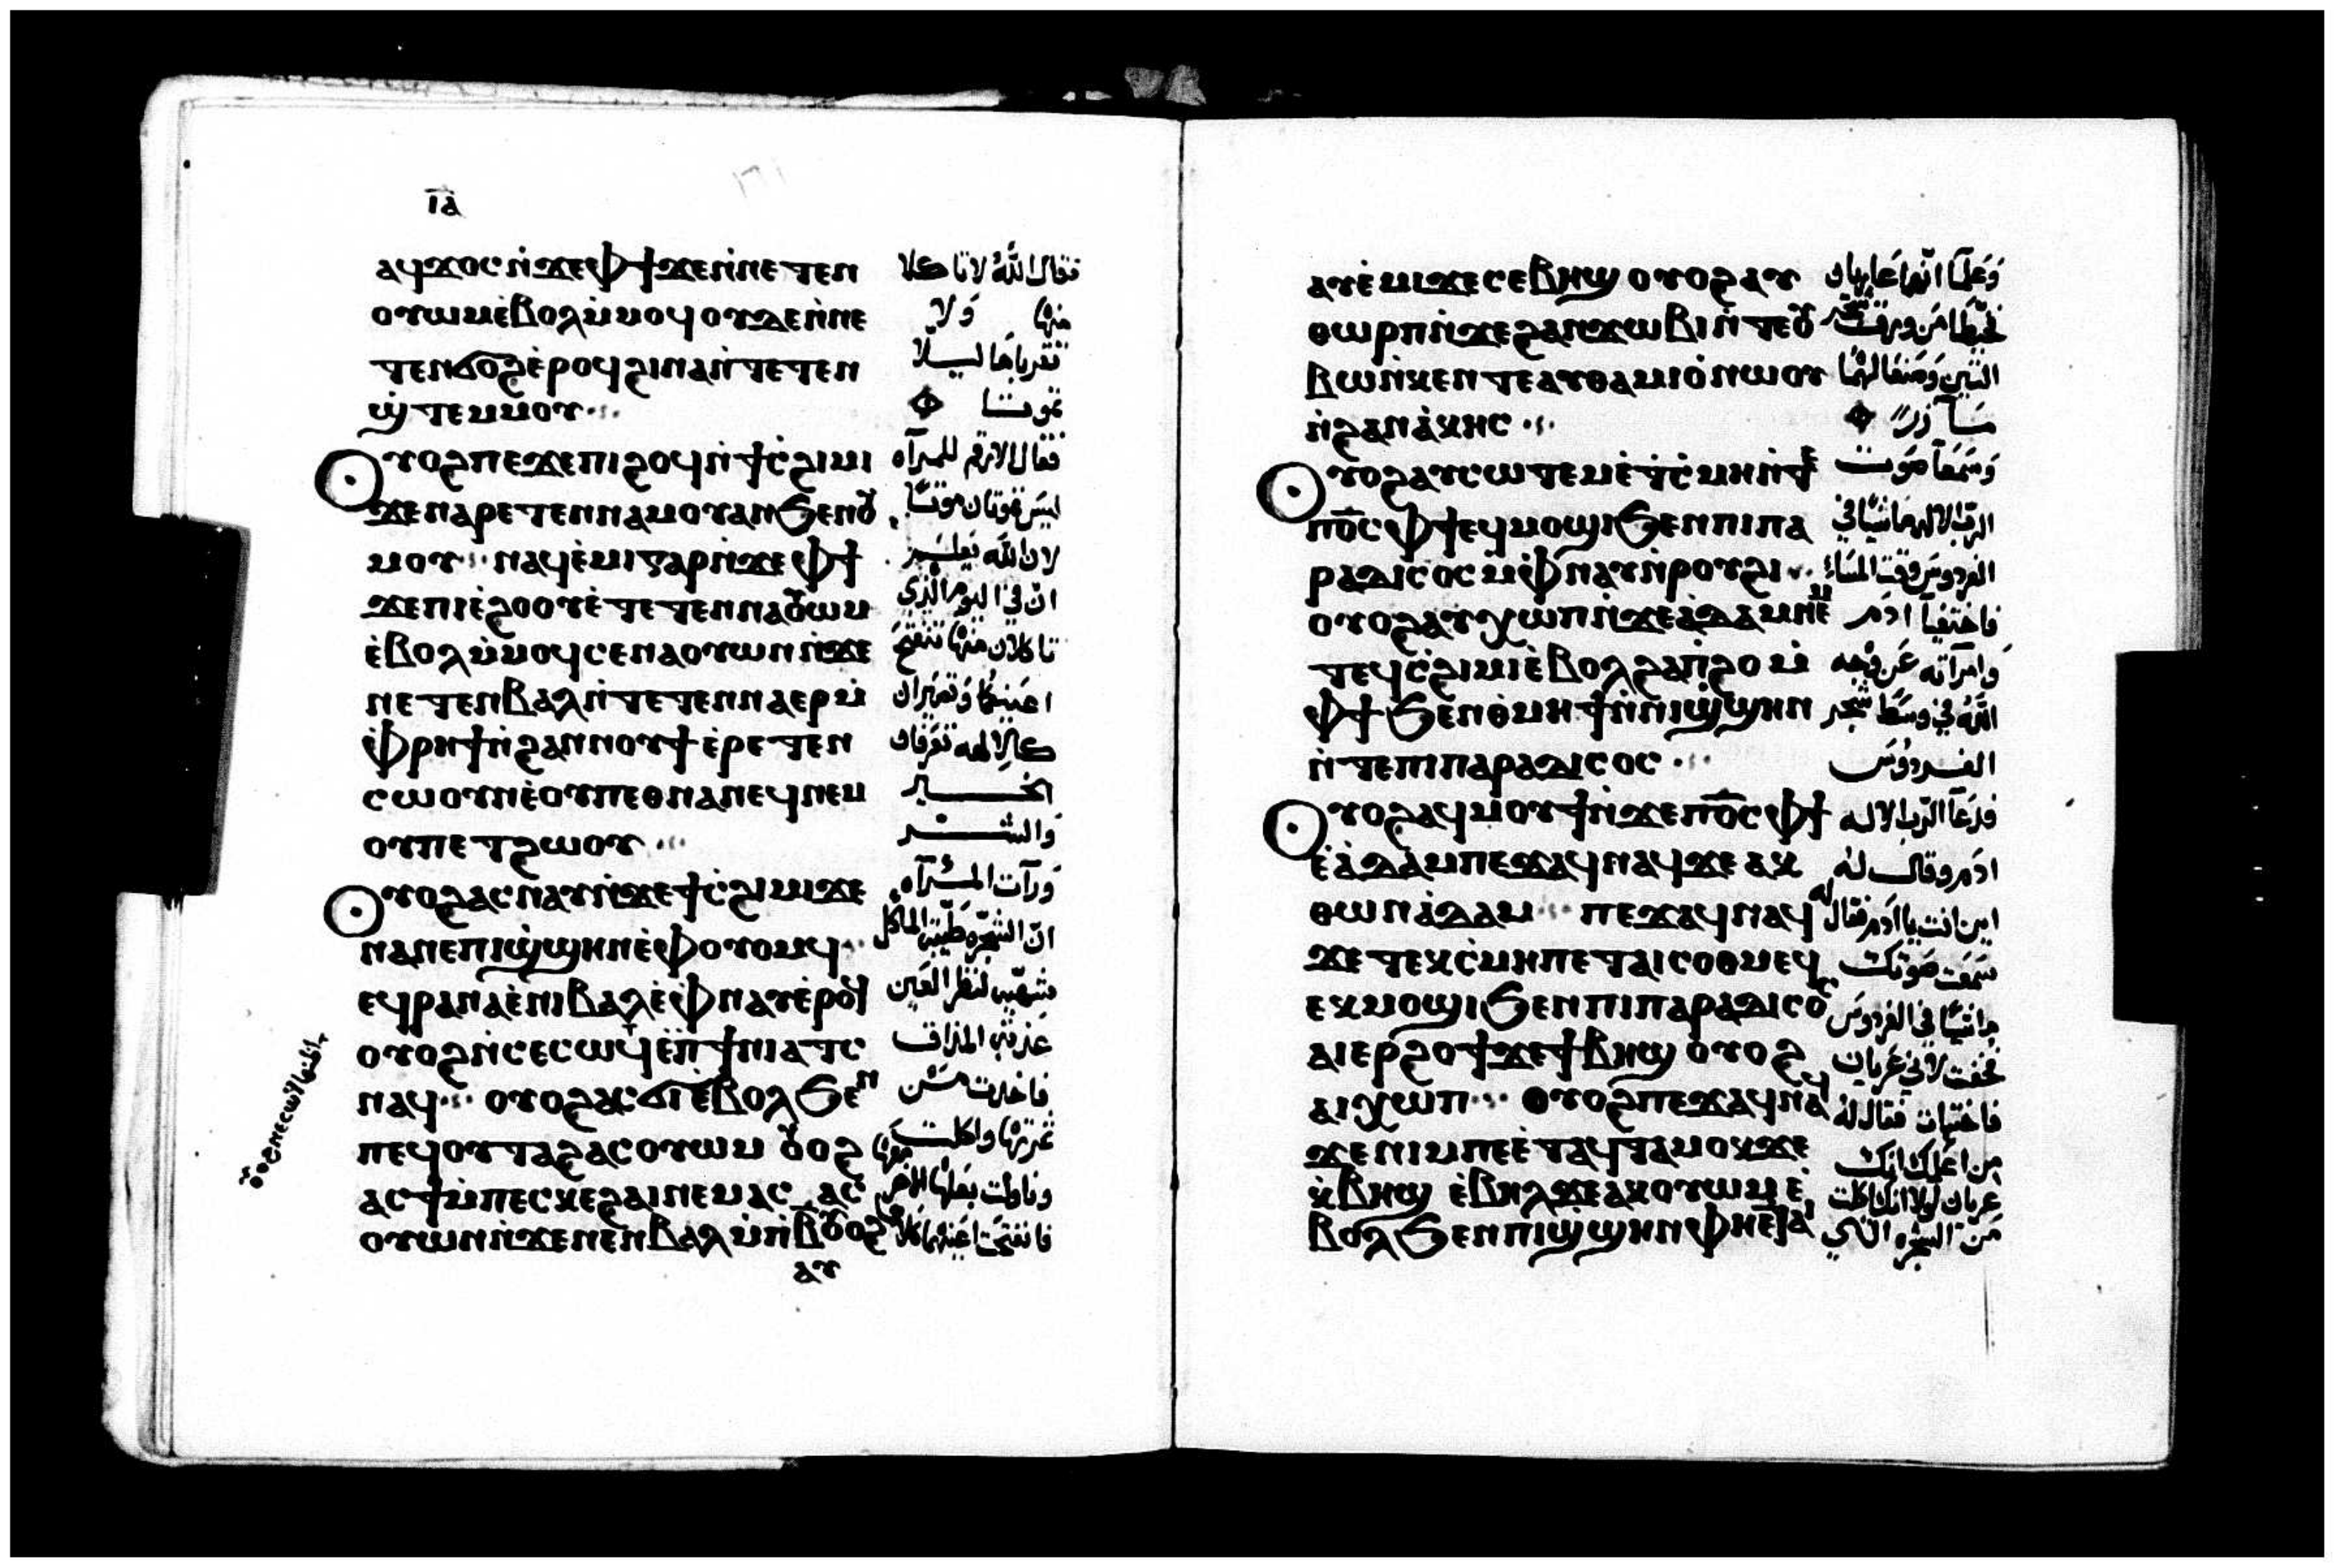 ⲓⲁ̅
ⲁϥϫⲟⲥ ⲛ̇ϫⲉⲫϯ ϫⲉⲛ̇ⲛⲉⲧⲉⲛ
ⲟⲩⲱⲙ ⲉ̇ⲃⲟⲗ ⲙ̇ⲙⲟϥ ⲟⲩⲇⲉ ⲛ̇ⲛⲉ
ⲧⲉⲛϭⲟϩ ⲉ̇ⲣⲟϥ ϩⲓⲛⲁ ⲛ̇ⲧⲉⲧⲉⲛ
ϣ̇ⲧⲉⲙⲙⲟⲩ
ⲟⲩⲟϩ ⲡⲉϫⲉ ⲡⲓϩⲟϥ ⲛ̇ϯⲥ̇ϩⲓⲙⲓ
ϫⲉ ⲛⲁⲣⲉⲧⲉⲛⲛⲁⲙⲟⲩ ⲁⲛ ϧⲉⲛ ⲟⲩ
ⲙⲟⲩ ⲛⲁϥⲉ̇ⲙⲓ ⲅⲁⲣ ⲛ̇ϫⲉ ⲫϯ
ϫⲉ ⲡⲓⲉ̇ϩⲟⲟⲩ ⲉ̇ⲧⲉⲧⲉⲛⲛⲁⲟⲩⲱⲙ
ⲉ̇ⲃⲟⲗ ⲙ̇ⲙⲟϥ ⲥⲉⲛⲁⲟⲩⲱⲛ ⲛ̇ϫⲉ
ⲛⲉⲧⲉⲛⲃⲁⲗ ⲛ̇ⲧⲉⲧⲉⲛⲛⲁⲉⲣ ⲙ̇
ⲫ̇ⲣⲏϯ ⲛ̇ϩⲁⲛⲛⲟⲩϯ ⲉ̇ⲣⲉⲧⲉⲛ
ⲥⲱⲟⲩⲛ ⲉ̇ⲟⲩⲡⲉⲑⲛⲁⲛⲉϥ ⲛⲉⲙ
ⲟⲩⲡⲉⲧϩⲱⲟⲩ
ⲟⲩⲟϩ ⲁⲥⲛⲁⲩ ⲛ̇ϫⲉ ϯⲥ̇ϩⲓⲙⲓ ϫⲉ
ⲛⲁⲛⲉ ⲡⲓϣ̇ϣⲏⲛ ⲉ̇ⲫⲟⲩⲟⲙϥ
ⲉϥⲣⲁⲛⲁ ⲉ̇ⲛⲓⲃⲁⲗ ⲉ̇ⲫ̇ⲛⲁⲩ ⲉ̇ⲣⲟϥ
ⲛⲁⲩ ⲟⲩⲟϩ ⲁⲥϭⲓ ⲉ̇ⲃⲟⲗ ϧⲉⲛ
ⲡⲉϥⲟⲩⲧⲁϩ ⲁⲥⲟⲩⲱⲙ ⲟⲩⲟϩ
ⲁⲥϯ ⲙ̇ⲡⲉⲥⲕⲉϩⲁⲓ ⲛⲉⲙⲁⲥ
ⲟⲩⲱⲛ ⲛ̇ϫⲉ ⲛⲉⲛⲃⲁⲗ ⲙ̇ⲡⲃ̅ ⲟⲩⲟϩ
ⲁⲩ
فقال الله لا تاكلا
منها ولا
تقرباها ليلا
تموتا
فقال الارقم للمرآه
ليس تموتان موتًا
لان الله يعلم
ان في اليوم الذي
تاكلان منها تنفتح
اعينكما وتصيران
كالالهه تعرفان
الخير
والشر
ورآت المرآه
ان الشجره طيبة الماكل
شهيه لنظر العين
فاخدت من
ثمرتها واكلت منها
ⲁⲩⲉ̇ⲙⲓ ϫⲉ ⲥⲉⲃⲏϣ ⲟⲩⲟϩ ⲁⲩ
ⲑⲱⲣⲡ ⲛ̇ϫⲉ ϩⲁⲛϫⲱⲃⲓ ⲛ̇ⲧⲉ ⲟⲩ
ⲃⲱ ⲛ̇ⲕⲉⲛⲧⲉ ⲁⲩⲑⲁⲙⲓⲟ̇ ⲛⲱⲟⲩ
ⲛ̇ϩⲁⲛⲁ̇ⲭⲏⲥ
ⲟⲩⲟϩ ⲁⲩⲥⲱⲧⲉⲙ ⲉ̇ⲧ̇ⲥ̇ⲙⲏ ⲛ̇ⲧⲉ
ⲡⲟ̅ⲥ ⲫϯ ⲉϥⲙⲟϣⲓ ϧⲉⲛ ⲡⲓⲡⲁ
ⲣⲁⲇⲓⲥⲟⲥ ⲙ̇ⲫ̇ⲛⲁⲩ ⲛ̇ⲣⲟⲩϩⲓ
ⲟⲩⲟϩ ⲁⲩⲭⲱⲡ ⲛ̇ϫⲉ ⲁ̇ⲇⲁⲙ ⲛⲉⲙ
ⲧⲉϥⲥ̇ϩⲓⲙⲓ ⲉ̇ⲃⲟⲗ ϩⲁ ⲡ̇ϩⲟ ⲙ̇
ⲫϯ ϧⲉⲛ ⲑ̇ⲙⲏϯ ⲛ̇ⲛⲓϣ̇ϣⲏⲛ
ⲛ̇ⲧⲉ ⲡⲓⲡⲁⲣⲁⲇⲓⲥⲟⲥ
ⲟⲩⲟϩ ⲁϥⲙⲟⲩϯ ⲛ̇ϫⲉ ⲡⲟ̅ⲥ ⲫϯ
ⲉ̇ⲁ̇ⲇⲁⲙ ⲡⲉϫⲁϥ ⲛⲁϥ ϫⲉ ⲁⲕ
ⲑⲱⲛ ⲁ̇ⲇⲁⲙ ⲡⲉϫⲁϥ ⲛⲁϥ
ϫⲉ ⲧⲉⲕⲥ̇ⲙⲏ ⲡⲉⲧⲁⲓⲥⲟⲑⲙⲉϥ
ⲉⲕⲙⲟϣⲓ ϧⲉⲛ ⲡⲓⲡⲁⲣⲁⲇⲓⲥⲟⲥ
ⲁⲓⲉⲣϩⲟϯ ϫⲉ ϯⲃⲏϣ ⲟⲩⲟϩ
ⲁⲓⲭⲱⲡ ⲟⲩⲟϩ ⲡⲉϫⲁϥ ⲛⲁϥ
ϫⲉ ⲛⲓⲙ ⲡⲉ ⲉ̇ⲧⲁϥⲧⲁⲙⲟⲕ ϫⲉ
ⲕ̇ⲃⲏϣ ⲉ̇ⲃⲏⲗ ϫⲉ ⲁⲕⲟⲩⲱⲙ ⲉ̇
ⲃⲟⲗ ϧⲉⲛ ⲡⲓϣ̇ϣⲏⲛ ⲫⲏ
وعلما انهما عاريان
التين وصنعا لهما
مـآزر
وسمعا صوت
الرب الاله ماشيًا في
الفردوس وقت المساء
فاختفيا ادم
وامرآته عن وجه
الله في وسط شجر
الفردوس
فدعا الرب الاله
ادم وقال له
اين انت يا ادم فقال له
سمعت صوتك
ماشيًا في الفردوس
فخفت لاني عريان
فاختبات فقال له
من اعلمك انك
من الشجره الذي